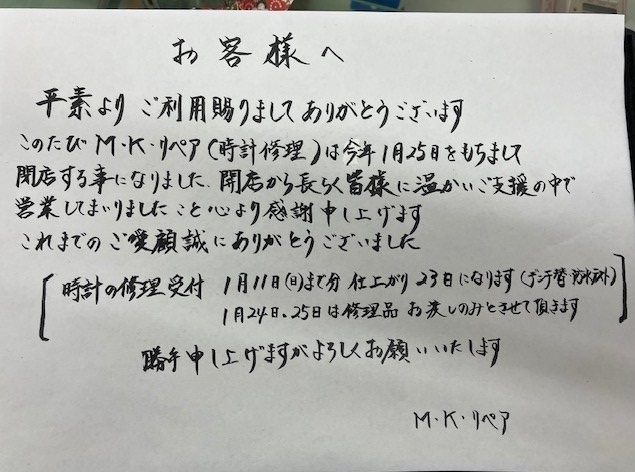 お客様へ
平素より ご利用賜りまして ありがとうございます
このたび M・K・リペア(時計修理)は今年1月25日をもちまして
閉店する事になりました. 開店から長らく皆様に温かいご支援の中で
営業してまいりましたこと心より感謝申し上げます
これまでのご愛顧誠にありがとうございました
時計の修理受付 1月11日(日)まで分 仕上がり 23日になります(デンチ替・
1月24日、25日は修理品 お渡しのみとさせて頂きます
勝手申し上げますがよろしくお願いいたします
M・K・リペア